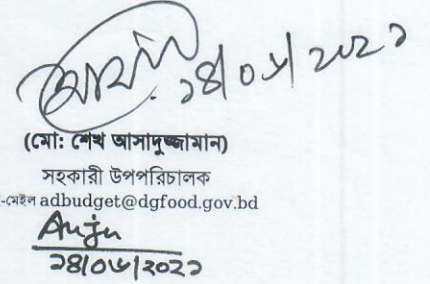 ১৪/০৬/২০২১
(মো: শেখ আসাদুজ্জামান)
সহকারী উপপরিচালক
-মেইল adbudget@dgfood.gov.bd
Anju
১৪/০৬/২০২১